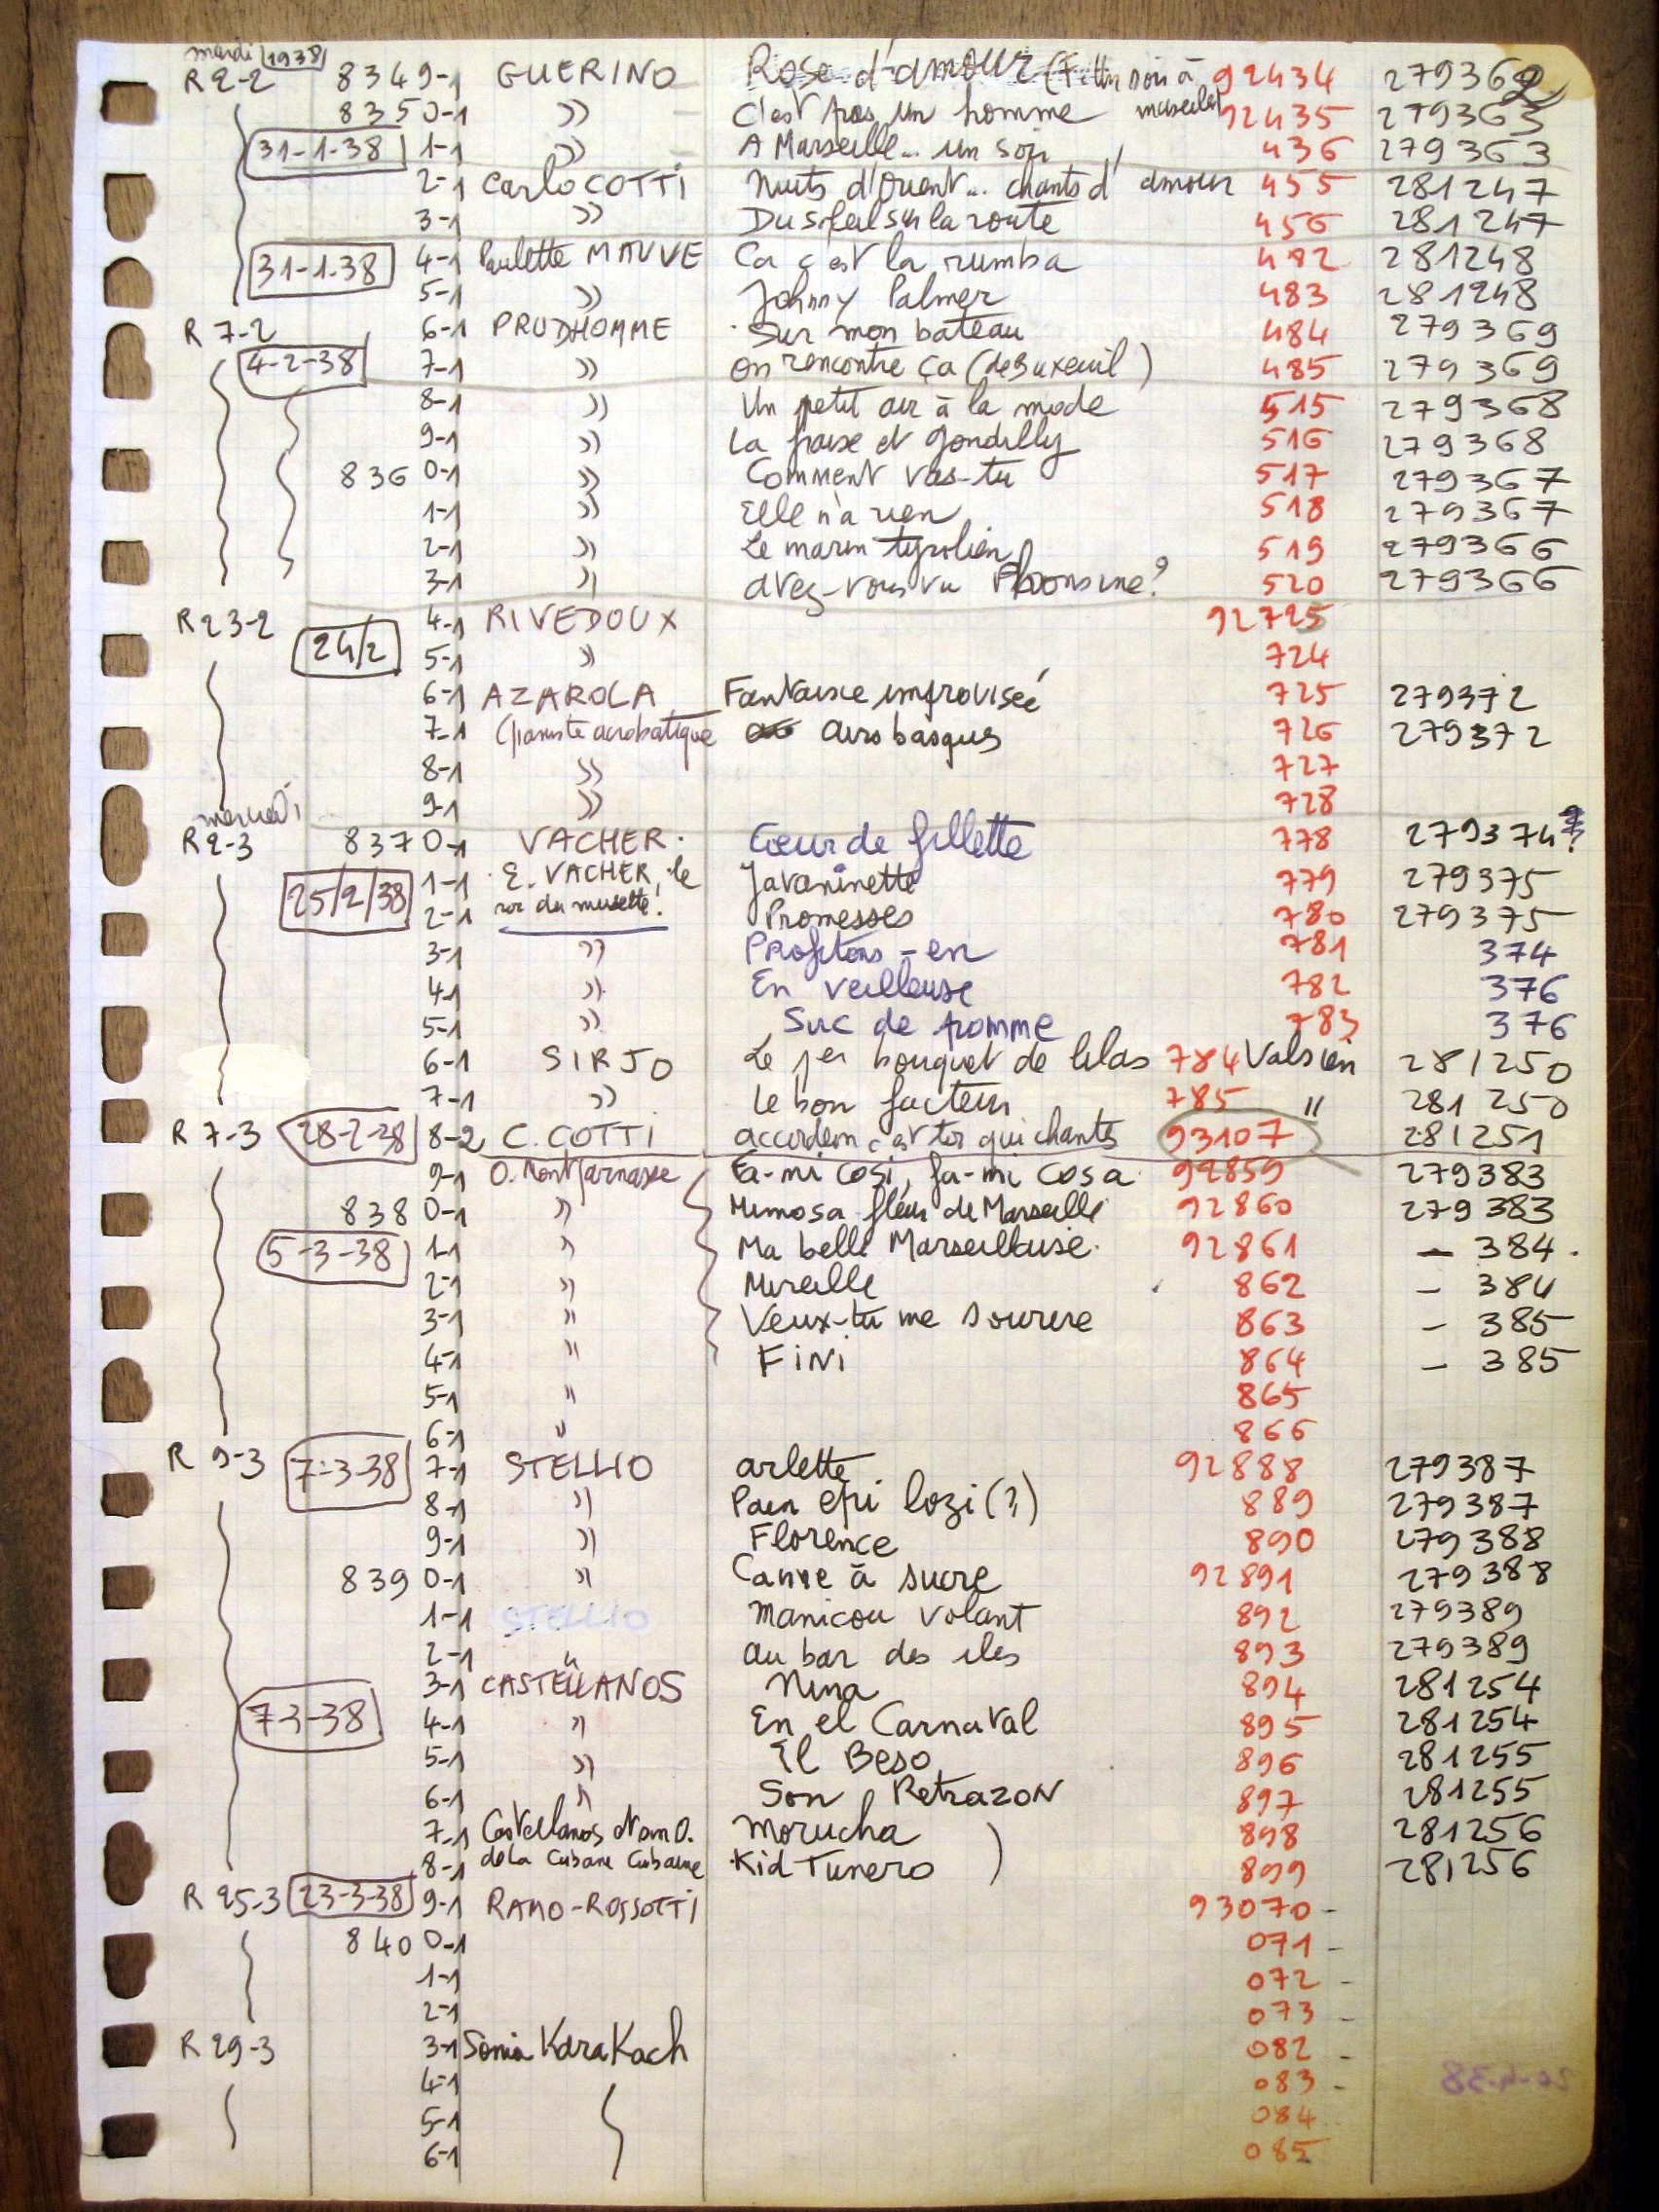 mardi 1938
R 2-2 8349-1 GUERINO Rose d'amour (F. Un soir à Marseille) 92434 279362
8350-1 " C'est pas un homme 92435 279363
31-1-38 1-1 " A Marseille... un soir 436 279363
2-1 Carlo COTTI Nuits d'Orient... chants d'amour 455 281247
3-1 " Du soleil sur la route 456 281247
31-1-38 4-1 Paulette MAUVE Ca c'est la rumba 482 281248
5-1 " Johnny Palmer 483 281248
R 7-2 6-1 PRUDHOMME Sur mon bateau 484 279369
4-2-38 7-1 " On rencontre ça (de Buxeuil) 485 279369
8-1 " Un petit air à la mode 515 279368
9-1 " La fraise et Gondilly 516 279368
8360-1 " Comment vas-tu 517 279367
1-1 " Elle n'a rien 518 279367
2-1 " Le marin tyrolien 519 279366
3-1 " avez-vous vu 520 279366
R 23-2 4-1 RIVEDOUX 92725
24/2 5-1 " 724
6-1 AZAROLA Fantaisie improvisée 725 279372
7-1 (pianiste acrobatique airs basques 726 279372
8-1 " 727
9-1 " 728
mercredi
R 2-3 8370-1 VACHER. Coeur de fillette 778 279374?
25/2/38 1-1 E. VACHER, le Javaninette 779 279375
2-1 roi du musette! Promesses 780 279375
3-1 " Profitons-en 781 374
4-1 " En veilleuse 782 376
5-1 " Suc de pomme 783 376
6-1 SIRJO Le 1er bouquet de lilas 784 Valsien 281250
7-1 " Le bon facteur 785 " 281250
R 7-3 28-2-38 8-2 C. COTTI accordéon c'est toi qui chants 93107 281251
9-1 O. Montparnasse Fa-mi cosi, fa-mi cosa 92859 279383
8380-1 " Mimosa fleur de Marseille 92860 279383
5-3-38 1-1 " Ma belle Marseillaise. 92861 – 384.
2-1 " Mireille 862 – 384
3-1 " Veux-tu me sourire 863 – 385
4-1 " FiNi 864 – 385
5-1 " 865
6-1 " 866
R 9-3 7-3-38 7-1 STELLIO arlette 92888 279387
8-1 " Pain epi lozi (?) 889 279387
9-1 " Florence 890 279388
8390-1 " Canne à sucre 92891 279388
1-1 STELLIO Manicou volant 892 279389
2-1 " au bar des iles 893 279389
7-3-38 3-1 CASTELLANOS Nina 894 281254
4-1 " En el Carnaval 895 281254
5-1 " El Beso 896 281255
6-1 " Son Retrazon 897 281255
7-1 Castellanos et son O. Morucha 898 281256
8-1 de la Cubane Cubaine Kid Tunero 899 281256
R 25-3 23-3-38 9-1 RAMO-ROSSOTTI 93070-
8400-1 071-
1-1 072-
2-1 073-
R 29-3 3-1 Sonia KaraKach 082-
4-1 083-
5-1 084
6-1 085